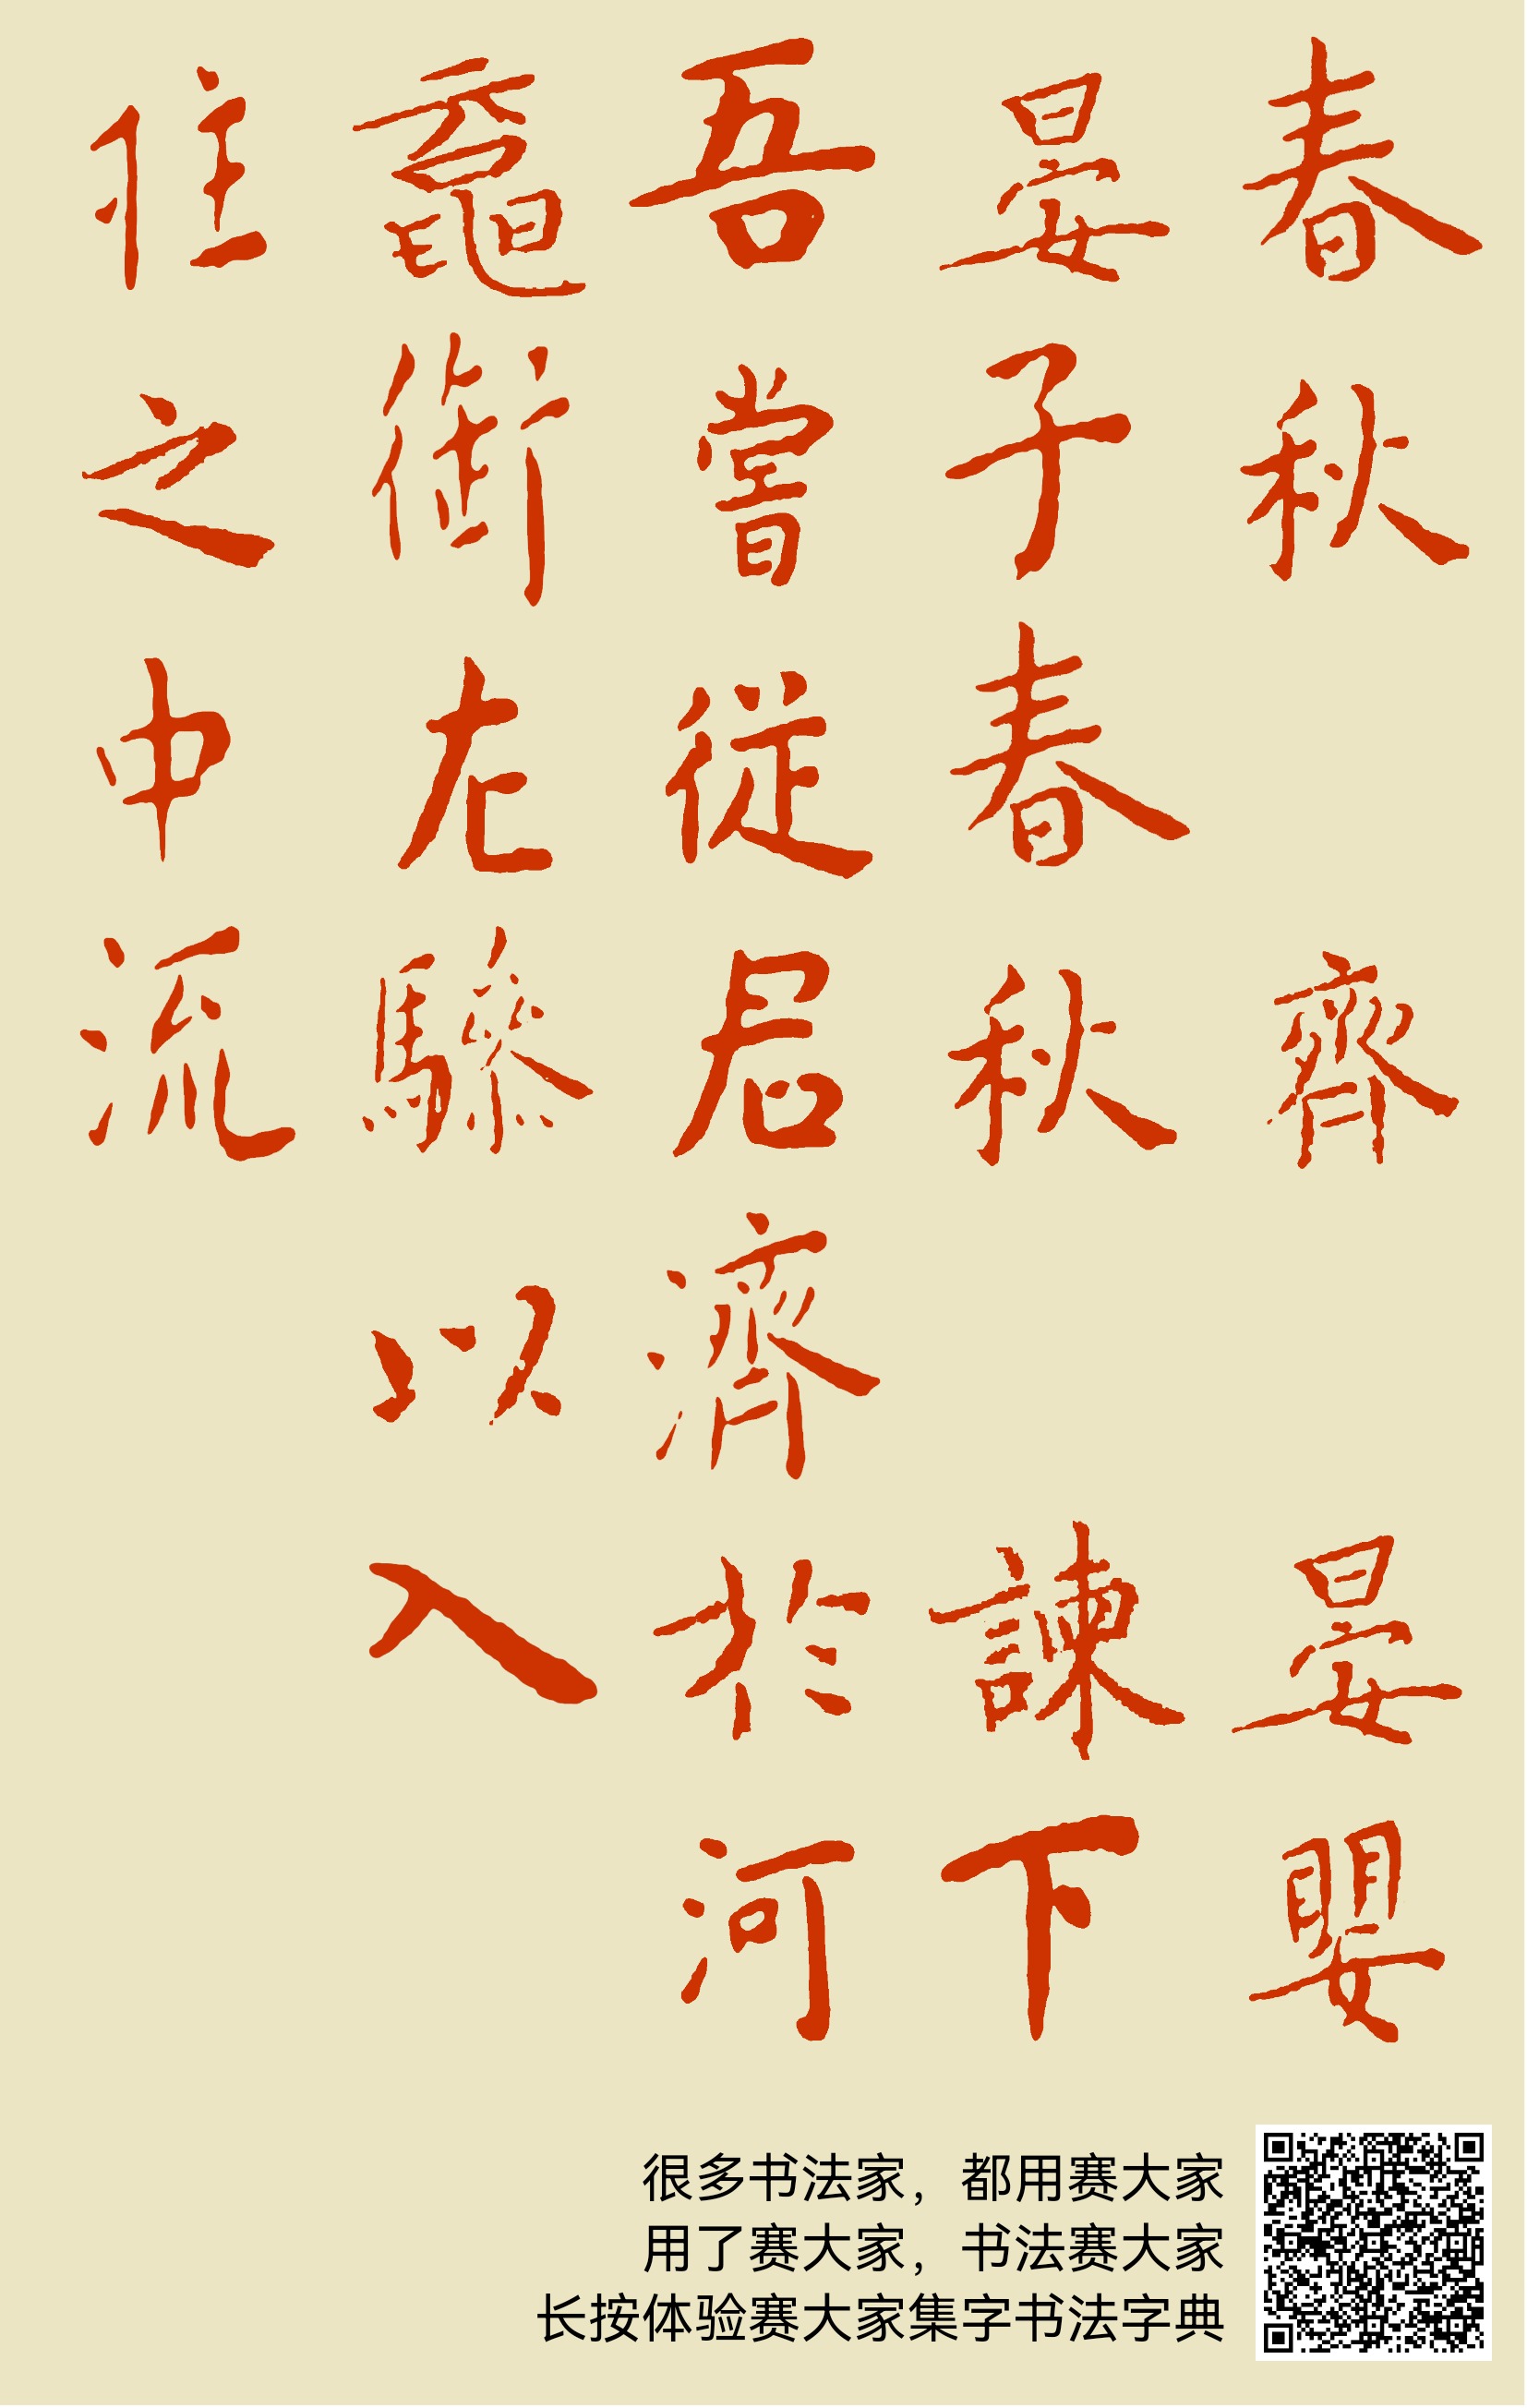 春秋 齊 晏嬰
晏子春秋 諫下
吾嘗從君濟於河
黿銜左驂以入
砫之中流
很多书法家，都用赛大家
用了赛大家，书法赛大家
长按体验赛大家集字书法字典